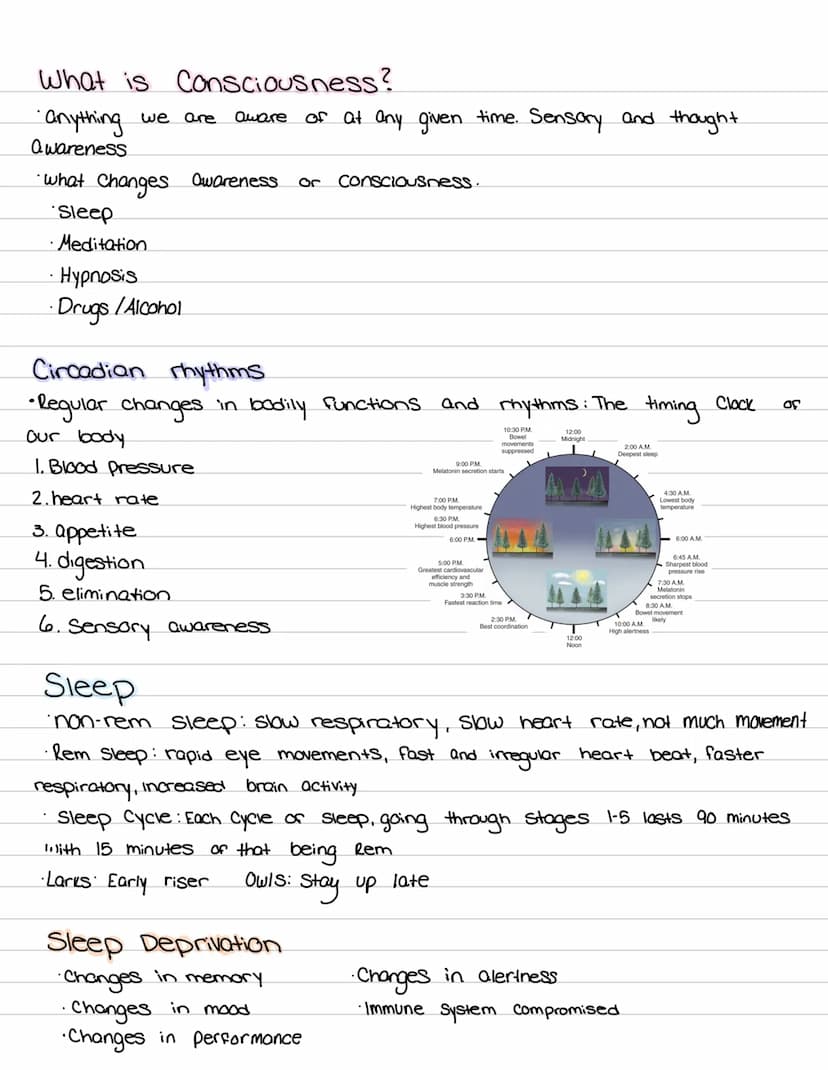 What is Consciousness?
· anything we are aware of at any given time. Sensory and thought
awareness
· what changes awareness or consciousness.
· Sleep
· Meditation
· Hypnosis
· Drugs / Alcohol
Circadian rhythms
• Regular changes in bodily functions and rhythms: The timing Clock of
our body
1. Blood pressure
2. heart rate
3. appetite
4. digestion
5. elimination
6. Sensory awareness
12:00
Midnight
2:00 A.M.
Deepest sleep
4:30 A.M.
Lowest body
temperature
6:00 A.M.
6:45 A.M.
Sharpest blood
pressure rise
7:30 A.M.
Melatonin
secretion stops
8:30 A.M.
Bowel movement
likely
10:00 A.M.
High alertness
12:00
Noon
2:30 P.M.
Best coordination
3:30 P.M.
Fastest reaction time
5:00 P.M.
Greatest cardiovascular
efficiency and
muscle strength
6:00 P.M.
6:30 P.M.
Highest blood pressure
7:00 P.M.
Highest body temperature
9:00 P.M.
Melatonin secretion starts
10:30 P.M.
Bowel
movements
suppressed
Sleep
· non-rem sleep: slow respiratory, slow heart rate, not much movement
· Rem Sleep: rapid eye movements, fast and irregular heart beat, faster
respiratory, increased brain activity
· Sleep Cycle: Each Cycle of sleep, going through stages 1-5 lasts 90 minutes
with 15 minutes of that being Rem
· Larks: Early riser Owls: Stay up late
Sleep Deprivation
· Changes in memory
· Changes in mood
· Changes in performance
· Changes in alertness
· Immune System compromised